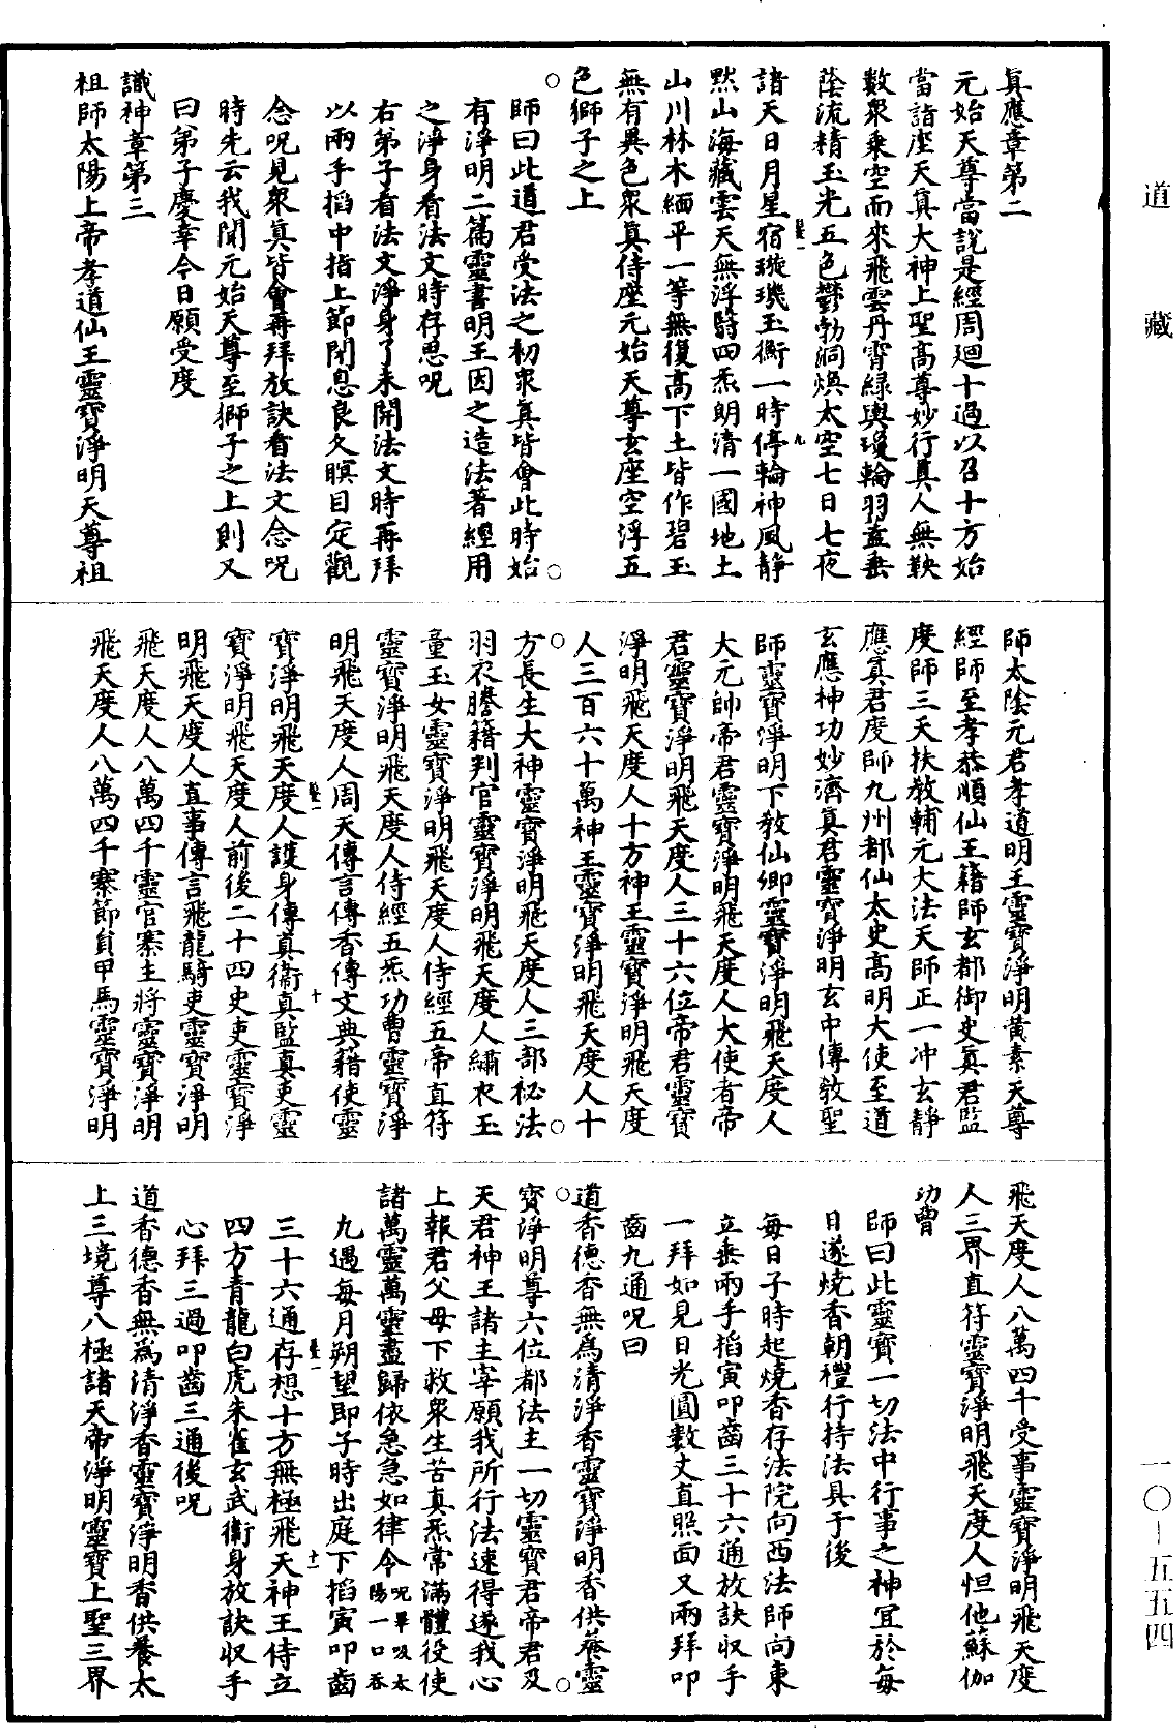 道藏
真應章第二
元始天尊當說是經周廻十過以召十方始
當詣座天真大神上聖高尊妙行真人無鞅
數衆乘空而來飛雲丹霄綠輿瓊輪羽蓋垂
蔭流精玉光五色鬱勃洞煥太空七日七夜
諸天日月星宿璇璣玉衡一時停輪神風靜
默山海藏雲天無浮翳四炁朗清一國地土
山川林木緬平一等無復高下土皆作碧玉
無有異色衆真侍座元始天尊玄座空浮五
色獅子之上
師曰此道君受法之初衆真皆會此時始
有淨明二篇靈書明王因之造法著經用
之淨身看法文時存思呪
右弟子看法文淨身了未開法文時再拜
以兩手掐中指上節閉息良久瞑目定觀
念呪見衆真皆會再拜放訣看法文念呪
時先云我聞元始天尊至獅子之上則又
曰弟子慶幸今日願受度
識神章第三
祖師太陽上帝孝道仙王靈寶淨明天尊祖
師太陰元君孝道明王靈寶淨明黃素天尊
經師至孝恭順仙王籍師玄都御史真君監
度師三天扶教輔元大法天師正一冲玄靜
應真君度師九州都仙太史高明大使至道
玄應神功妙濟真君靈寶淨明玄中傳教聖
師靈寶淨明下教仙卿靈寶淨明飛天度人
大元帥帝君靈寶淨明飛天度人大使者帝
君靈寶淨明飛天度人三十六位帝君靈寶
淨明飛天度人十方神王靈寶淨明飛天度
人三百六十萬神王靈寶淨明飛天度人十
方長生大神靈寶淨明飛天度人三部祕法
羽衣謄籍判官靈寶淨明飛天度人繡衣玉
童玉女靈寶淨明飛天度人侍經五帝直符
靈寶淨明飛天度人侍經五炁功曹靈寶淨
明飛天度人周天傳言傳香傳文典籍使靈
寶淨明飛天度人護身傳真衞真監真吏靈
寶淨明飛天度人前後二十四史吏靈寶淨
明飛天度人直事傳言飛龍騎吏靈寶淨明
飛天度人八萬四千靈官寨主將靈寶淨明
飛天度人八萬四千寨節負甲馬靈寶淨明
飛天度人八萬四千受事靈寶淨明飛天度
人三界直符靈寶淨明飛天度人怛他蘇伽
功曹
師曰此靈寶一切法中行事之神宜於每
日遂燒香朝禮行持法具于後
每日子時起燒香存法院向西法師向東
立垂兩手掐寅叩齒三十六通放訣収手
一拜如見日光圓數丈直照面又兩拜叩
齒九通呪曰
道香德香無爲清淨香靈寶淨明香供養靈
寶淨明尊六位都法主一切靈寶君帝君及
天君神王諸主宰願我所行法速得遂我心
上報君父母下救衆生苦真炁常滿體役使
諸萬靈萬靈盡歸依急急如律令呪畢吸太陽一口吞
九遇每月朔望即子時出庭下掐寅叩齒
三十六通存想十方無極飛天神王侍立
四方青龍白虎朱雀玄武衛身放訣収手
心拜三過叩齒三通後呪
道香德香無爲清淨香靈寶淨明香供養太
上三境尊八極諸天帝淨明靈寶上聖三界
一〇－五五四